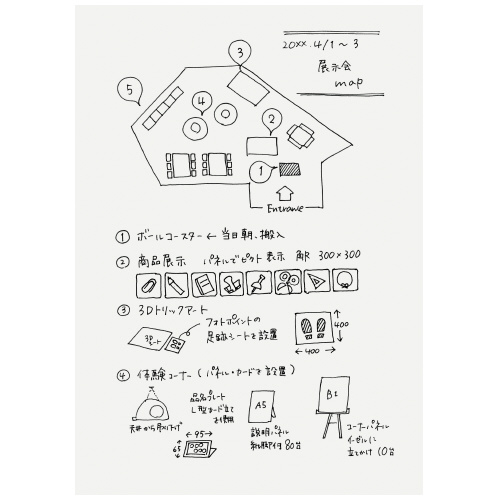 20xx.4/1〜3
展示会
map
3
5
4
2
1
Entrance
① ボールコースター ← 当日朝、搬入
② 商品展示 パネルでピクト表示 角R 300×300
③ 3Dトリックアート
3Dシート
フォトポイントの
足跡シートを設置
400
400
④ 体験コーナー（パネル・カードを設置）
天井から吊り下げ
品名プレート
L型カード立て
を使用
95
65
A5
説明パネル
紙脚付 80台
B1
コーナーパネル
イーゼルに
立てかけ 10台